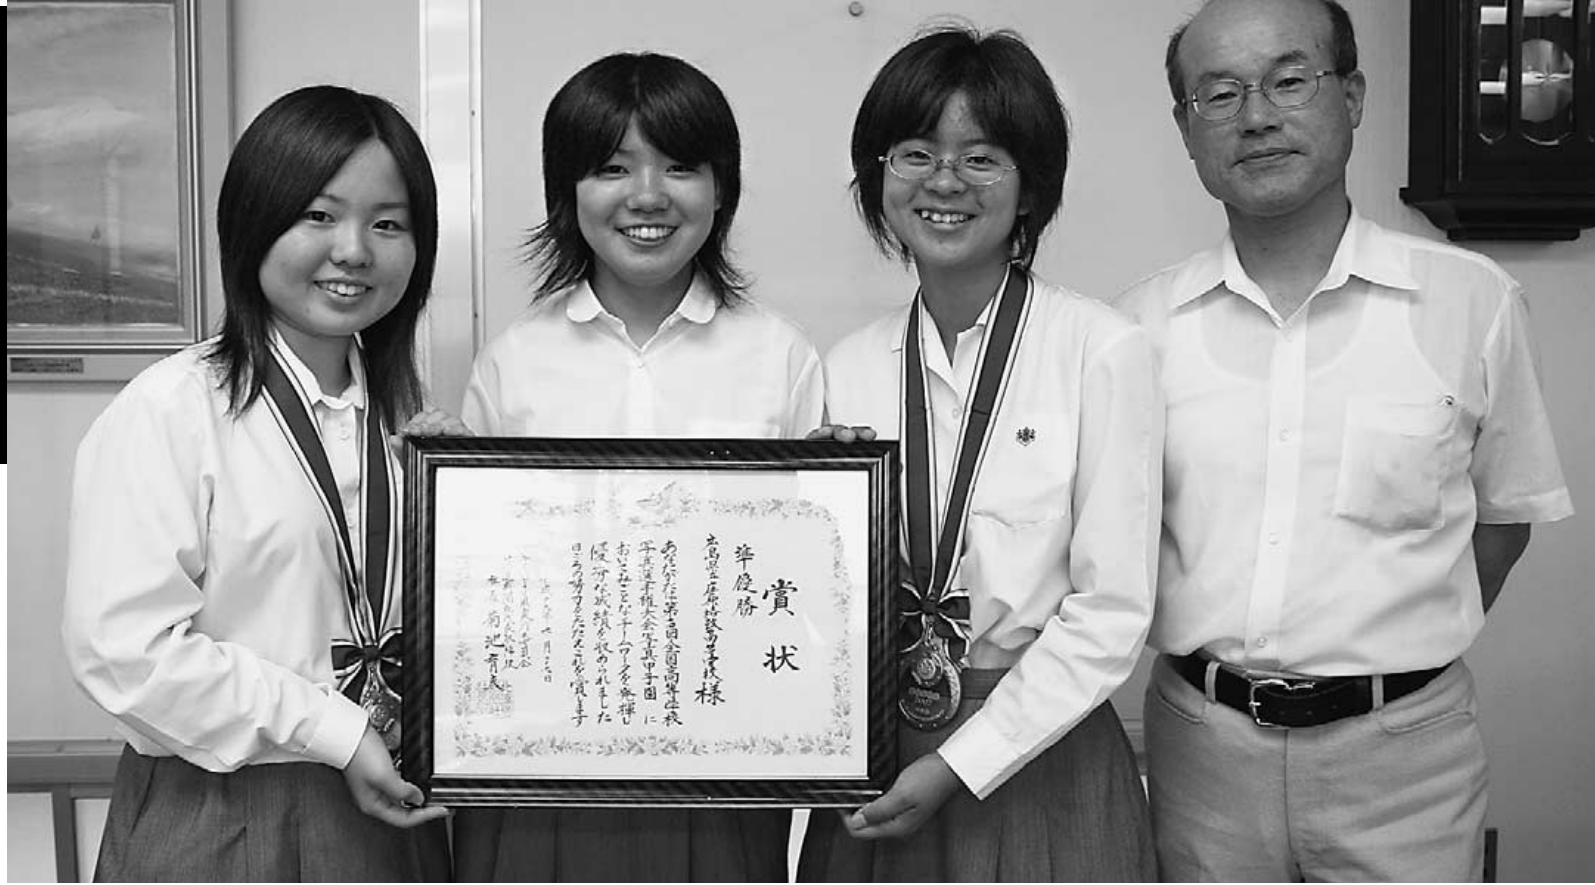 賞状
準優勝
広島県立庄原格致高等学校様
あなたがたは第十四回全国高等学校
写真選手権大会写真甲子園に
おいてみごとなチームワークを発揮し
優秀な成績を収められました
日ごろの努力をたたえこれを賞します
菊池
2007